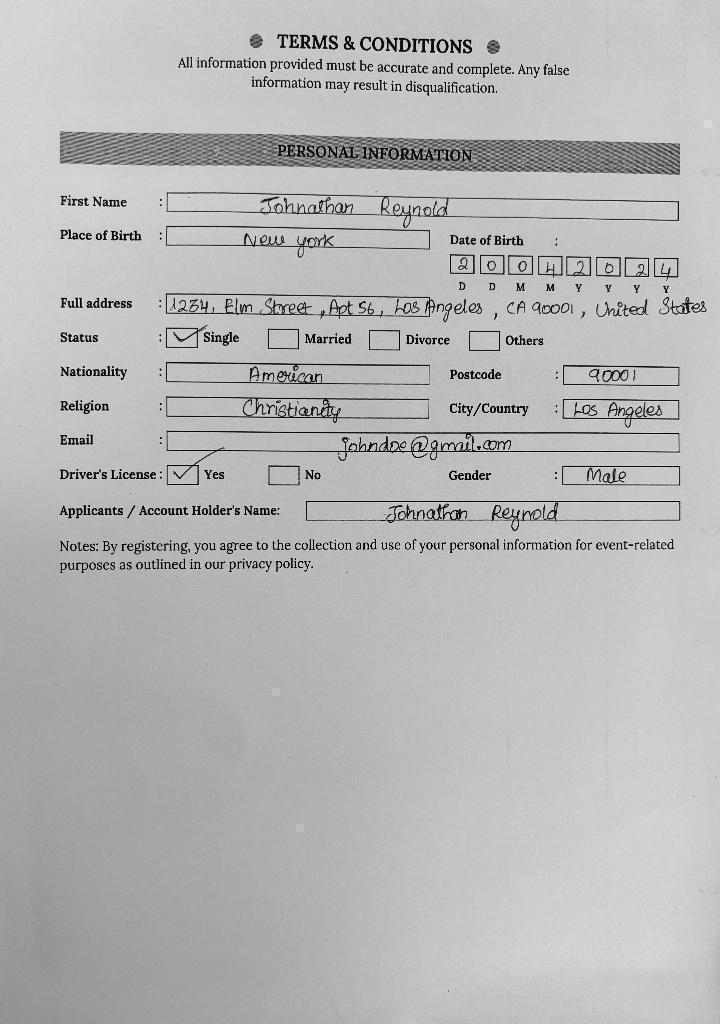 TERMS & CONDITIONS
All information provided must be accurate and complete. Any false
information may result in disqualification.
PERSONAL INFORMATION
First Name : Johnathan Reynold
Place of Birth : New york Date of Birth :
2 0 0 4 2 0 2 4
D D M M Y Y Y Y
Full address : 1234, Elm Street, Apt 56, Los Angeles, CA 90001, United States
Status : Single Married Divorce Others
Nationality : American Postcode : 90001
Religion : Christianity City/Country : Los Angeles
Email : johndoe@gmail.com
Driver's License : Yes No Gender : Male
Applicants / Account Holder's Name: Johnathan Reynold
Notes: By registering, you agree to the collection and use of your personal information for event-related
purposes as outlined in our privacy policy.